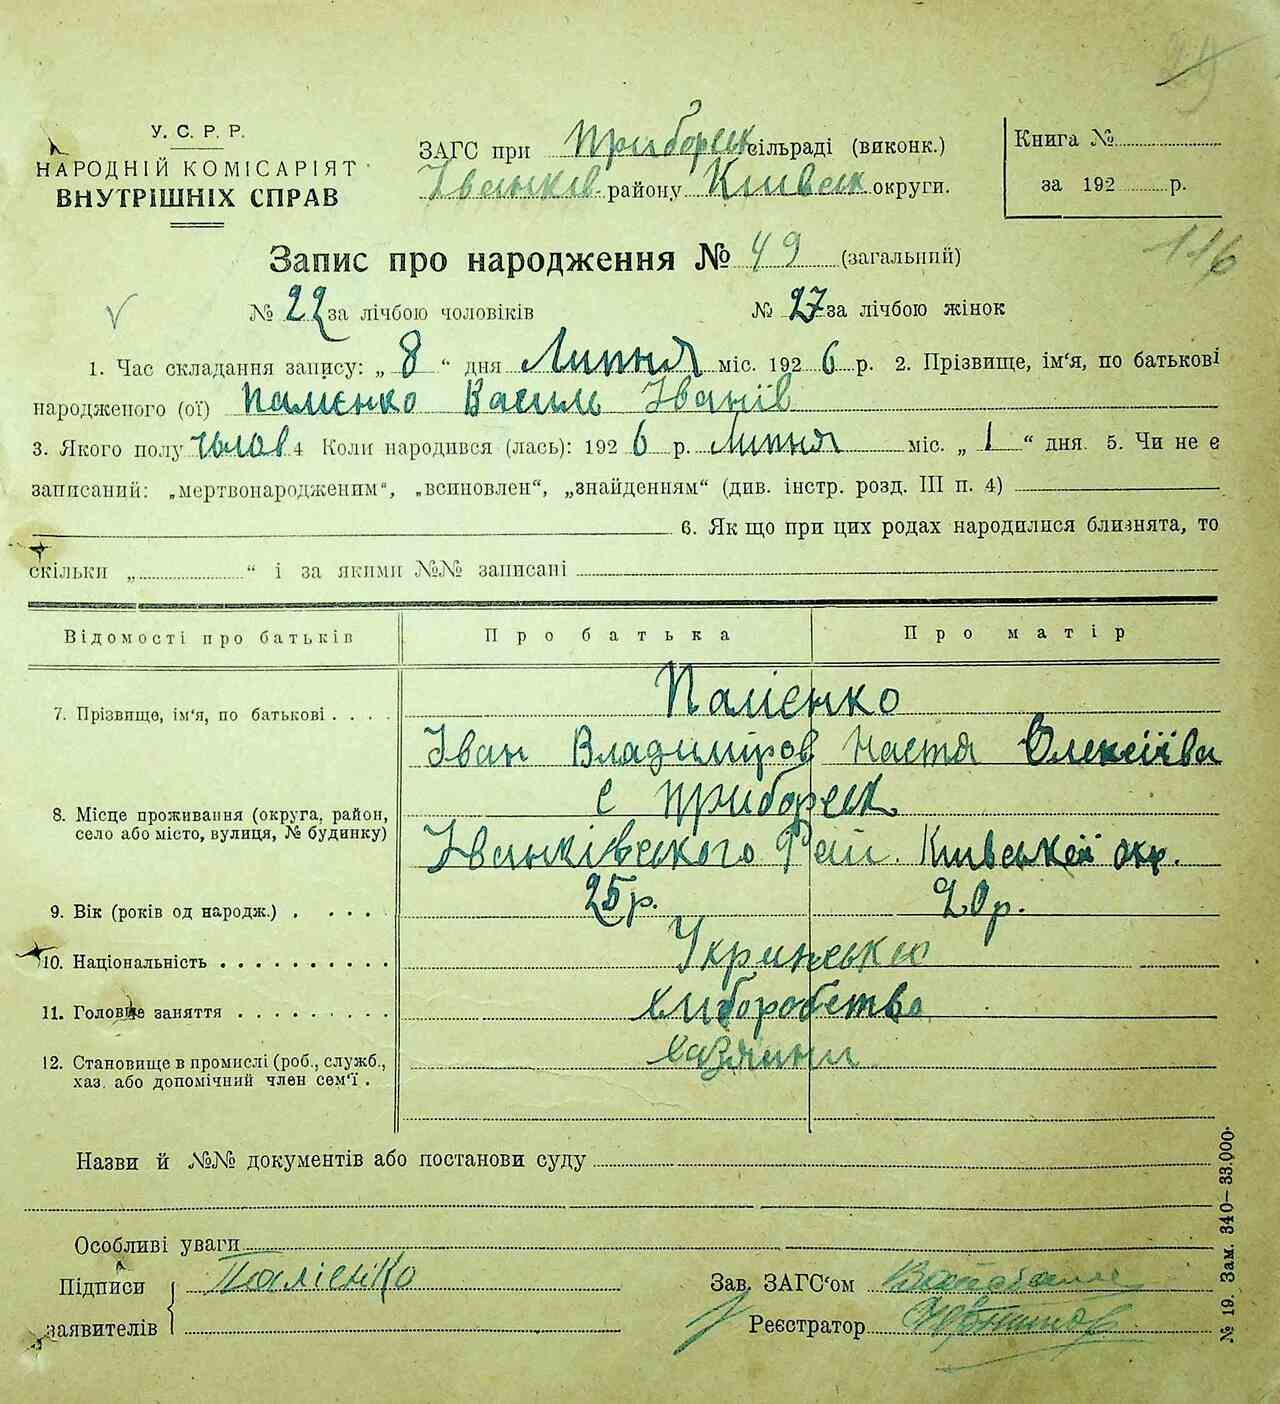 29
У. С. Р. Р.
НАРОДНІЙ КОМІСАРІЯТ
ВНУТРІШНІХ СПРАВ
ЗАГС при Приборськ сільраді (виконк.)
Іванків. району Київськ округи.
Книга №
за 192 р.
Запис про народження № 49 (загальний)
116
№ 22 за лічбою чоловіків № 27 за лічбою жінок
1. Час складання запису: „ 8 “ дня Липня міс. 192 6 р. 2. Прізвище, ім‘я, по батькові
народженого (ої) Палієнко Василь Іванів
3. Якого полу чолов 4 Коли народився (лась): 192 6 р. Липня міс. „ 1 “ дня. 5. Чи не є
записаний: „мертвонародженим“, „всиновлен“, „знайденням“ (див. інстр. розд. III п. 4)
6. Як що при цих родах народилися близнята, то
скільки „ “ і за якими №№ записані
Відомості про батьків Про батька Про матір
Палієнко
7. Прізвище, ім‘я, по батькові . . . .
Іван Владиміров Настя Олексіївна
с Приборськ
8. Місце проживання (округа, район,
село або місто, вулиця, № будинку)
Іванківського Рай. Київської окр.
9. Вік (років од народж.) . . . . 25 р. 20 р.
10. Національність . . . . . . . . . .
11. Головне заняття . . . . . . . . . Хліборобство
12. Становище в промислі (роб., служб.,
хаз. або допомічний член сем‘ї .
Назви й №№ документів або постанови суду
Особливі уваги
Підписи Палієнко Зав. ЗАГС‘ом
заявителів Реєстратор
№ 19. Зам. 340—33.000.